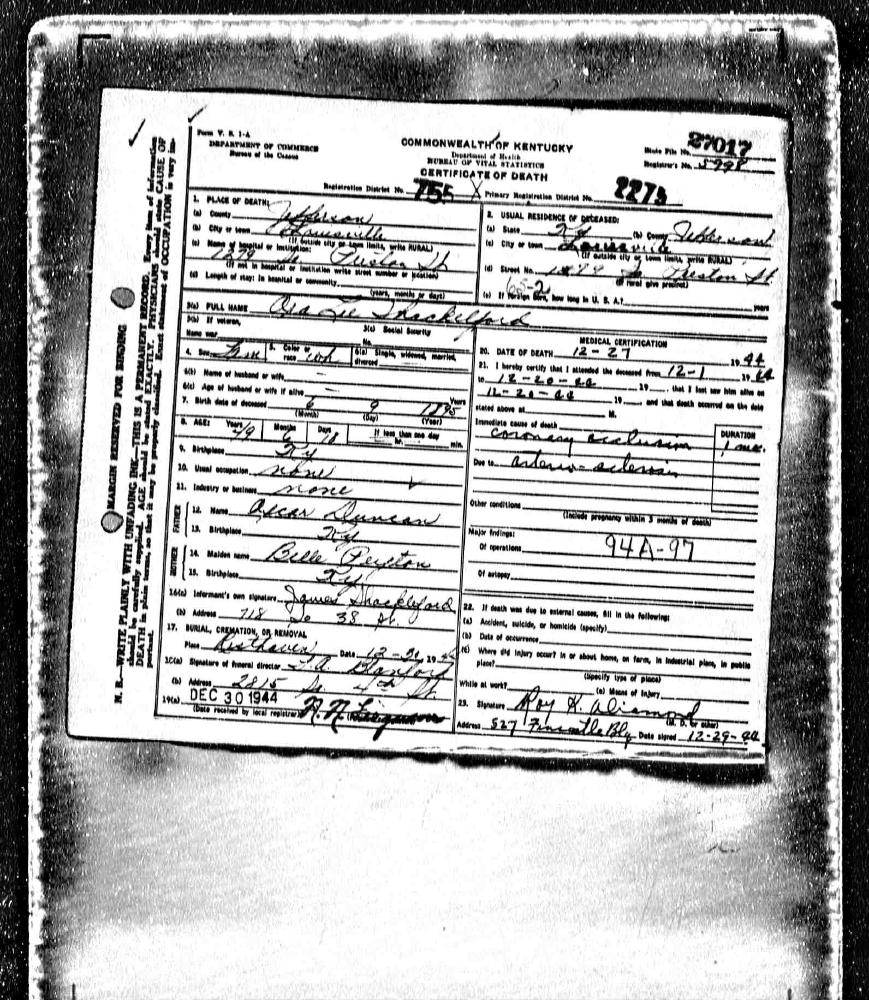 Form V. S. 1-A
DEPARTMENT OF COMMERCE
Bureau of the Census
COMMONWEALTH OF KENTUCKY
Department of Health
BUREAU OF VITAL STATISTICS
CERTIFICATE OF DEATH
State File No. 27017
Registrar's No. 5998
Registration District No. 755 X Primary Registration District No. 2275
1. PLACE OF DEATH:
(a) County Jefferson
(b) City or town Louisville
(If outside city or town limits, write RURAL)
(c) Name of hospital or institution:
So. Preston St.
(If not in hospital or institution write street number or location)
(d) Length of stay: In hospital or community
(years, months or days)
2. USUAL RESIDENCE OF DECEASED:
(a) State Ky (b) County Jefferson
(c) City or town Louisville
(If outside city or town limits, write RURAL)
(d) Street No. So. Preston St.
(If rural give precinct)
65-2
(e) If foreign born, how long in U. S. A.? years
3(a) FULL NAME Lee Shackelford
3(b) If veteran,
Name war
3(c) Social Security
No.
4. Sex Fem 5. Color or race wh 6(a) Single, widowed, married, divorced
6(b) Name of husband or wife
6(c) Age of husband or wife if alive Years
7. Birth date of deceased 6 9 1895
(Month) (Day) (Year)
8. AGE: Years 49 Months 6 Days 18 If less than one day hr. min.
9. Birthplace Ky
10. Usual occupation none
11. Industry or business none
FATHER
12. Name Oscar Duncan
13. Birthplace Ky
MOTHER
14. Maiden name Belle Peyton
15. Birthplace Ky
16(a) Informant's own signature James Shackleford
(b) Address 718 So 38 St.
17. BURIAL, CREMATION, OR REMOVAL
Place Resthaven Date 12-
18(a) Signature of funeral director
(b) Address 2815 So. 4th St.
19(a) DEC 30 1944
(Date received by local registrar)
MEDICAL CERTIFICATION
20. DATE OF DEATH 12-27 1944
21. I hereby certify that I attended the deceased from 12-1 19 44
to 12-20-44 19 , that I last saw him alive on
12-20-44 19 , and that death occurred on the date
stated above at M.
Immediate cause of death
coronary occlusion
DURATION
1 mo.
Due to arterio-sclerosis
Other conditions
(Include pregnancy within 3 months of death)
Major findings:
Of operations
94A-97
Of autopsy
22. If death was due to external causes, fill in the following:
(a) Accident, suicide, or homicide (specify)
(b) Date of occurrence
(c) Where did injury occur? In or about home, on farm, in industrial place, in public place?
(Specify type of place)
While at work? (e) Means of injury
23. Signature Roy H.
(M. D. or other)
Address 527 Date signed 12-29-44
MARGIN RESERVED FOR BINDING
N. B.—WRITE PLAINLY WITH UNFADING INK—THIS IS A PERMANENT RECORD. Every item of information
should be carefully supplied. AGE should be stated EXACTLY. PHYSICIANS should state CAUSE OF
DEATH in plain terms, so that it may be properly classified. Exact statement of OCCUPATION is very im-
portant.